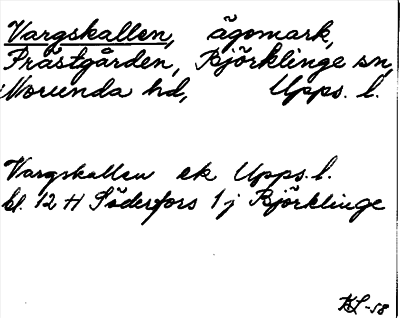 Vargskallen, ägomark,
Prästgården, Björklinge sn,
Norunda hd, Upps. l.
Vargskallen ek Upps. l.
bl. 12 H Söderfors 1 j Björklinge